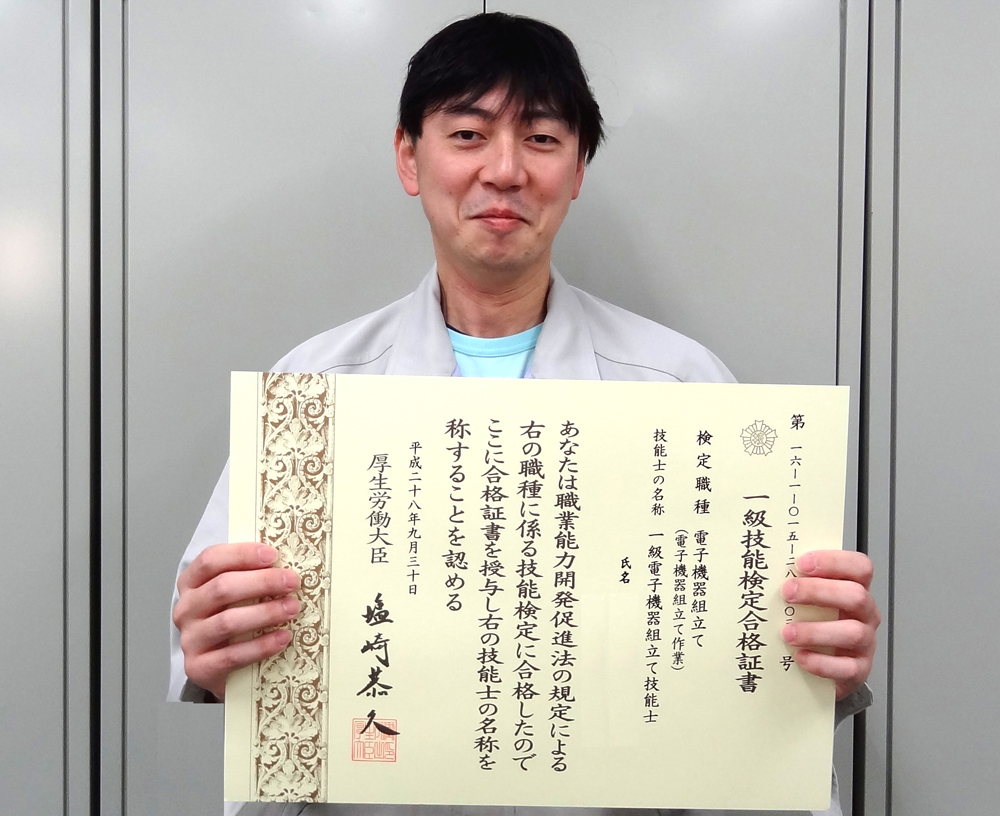 第 一六ー一ー〇一五ー二八 〇 号
一級技能検定合格証書
検定職種 電子機器組立て
(電子機器組立て作業)
技能士の名称 一級電子機器組立て技能士
氏名
あなたは職業能力開発促進法の規定による
右の職種に係る技能検定に合格したので
ここに合格証書を授与し右の技能士の名称を
称することを認める
平成二十八年九月三十日
厚生労働大臣 塩崎恭久